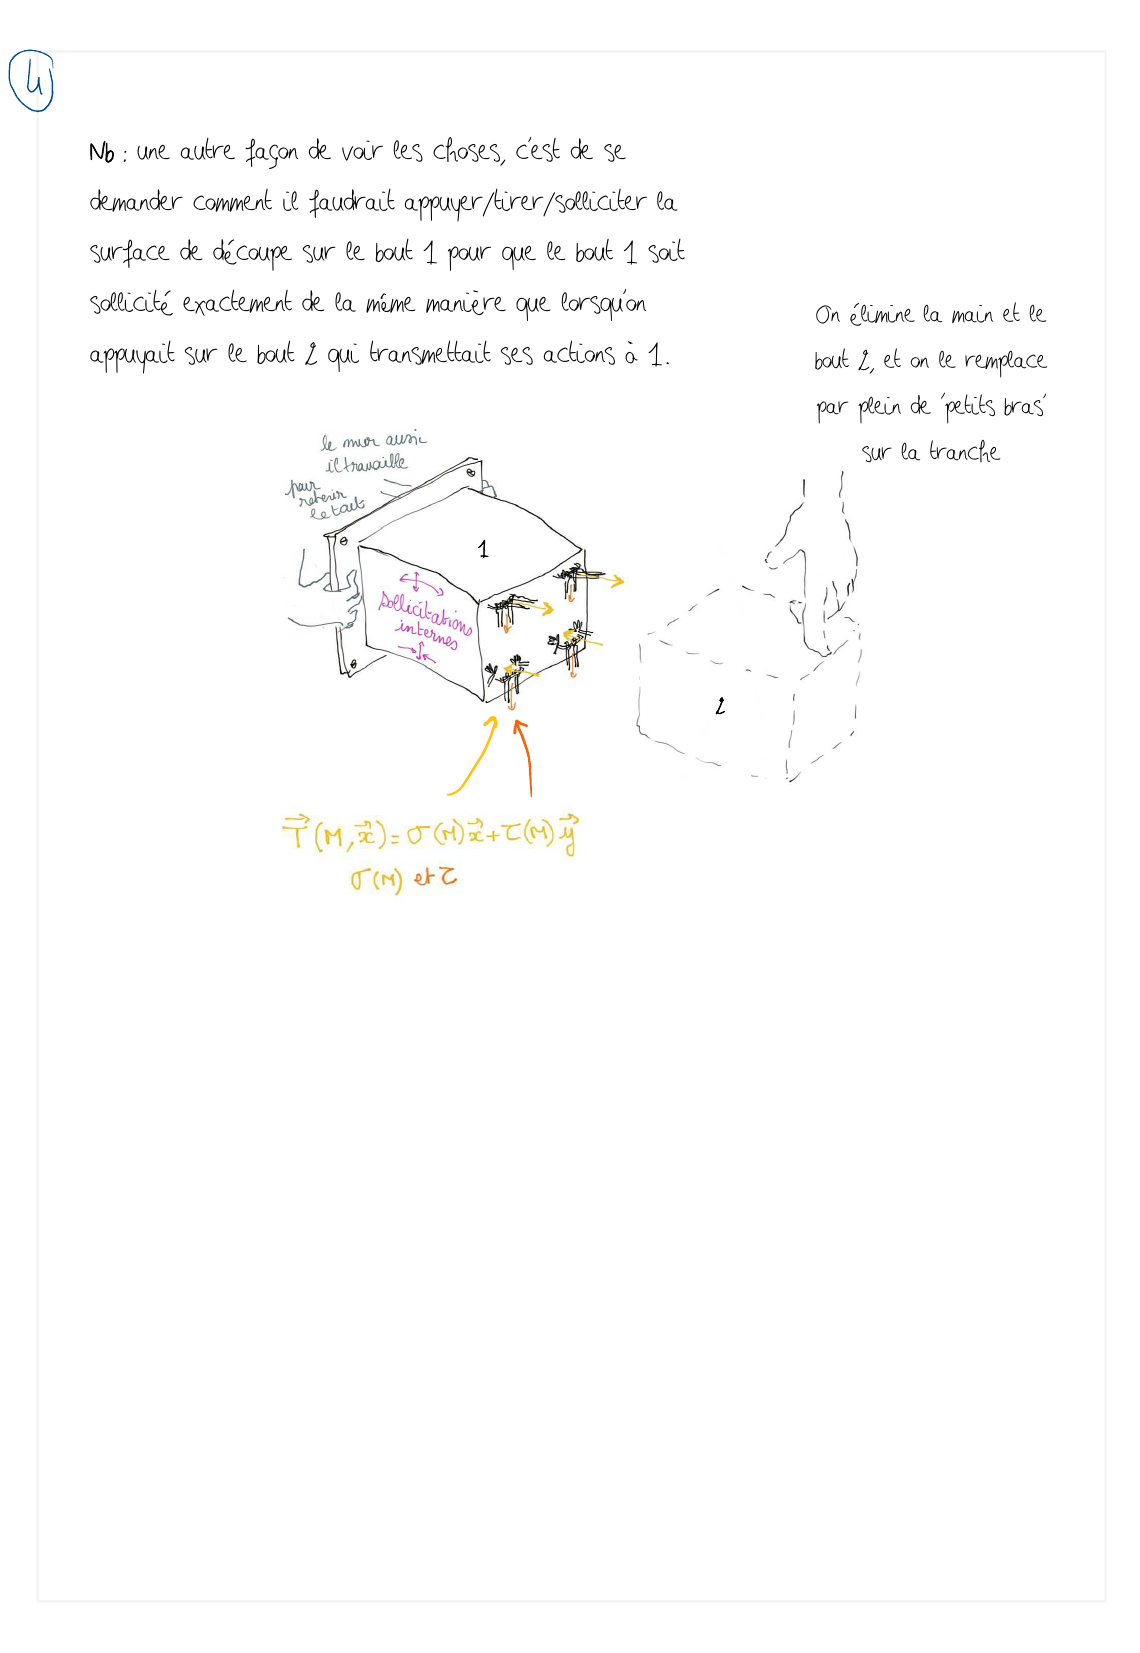 4
Nb : une autre façon de voir les choses, c'est de se
demander comment il faudrait appuyer/tirer/solliciter la
surface de découpe sur le bout 1 pour que le bout 1 soit
sollicité exactement de la même manière que lorsqu'on
appuyait sur le bout 2 qui transmettait ses actions à 1.
On élimine la main et le
bout 2, et on le remplace
par plein de 'petits bras'
sur la tranche
le mur aussi
il travaille
pour
retenir
le tout
1
Sollicitations
internes
2
T⃗(M, x⃗) = σ(M) x⃗ + τ(M) y⃗
σ(M) et τ